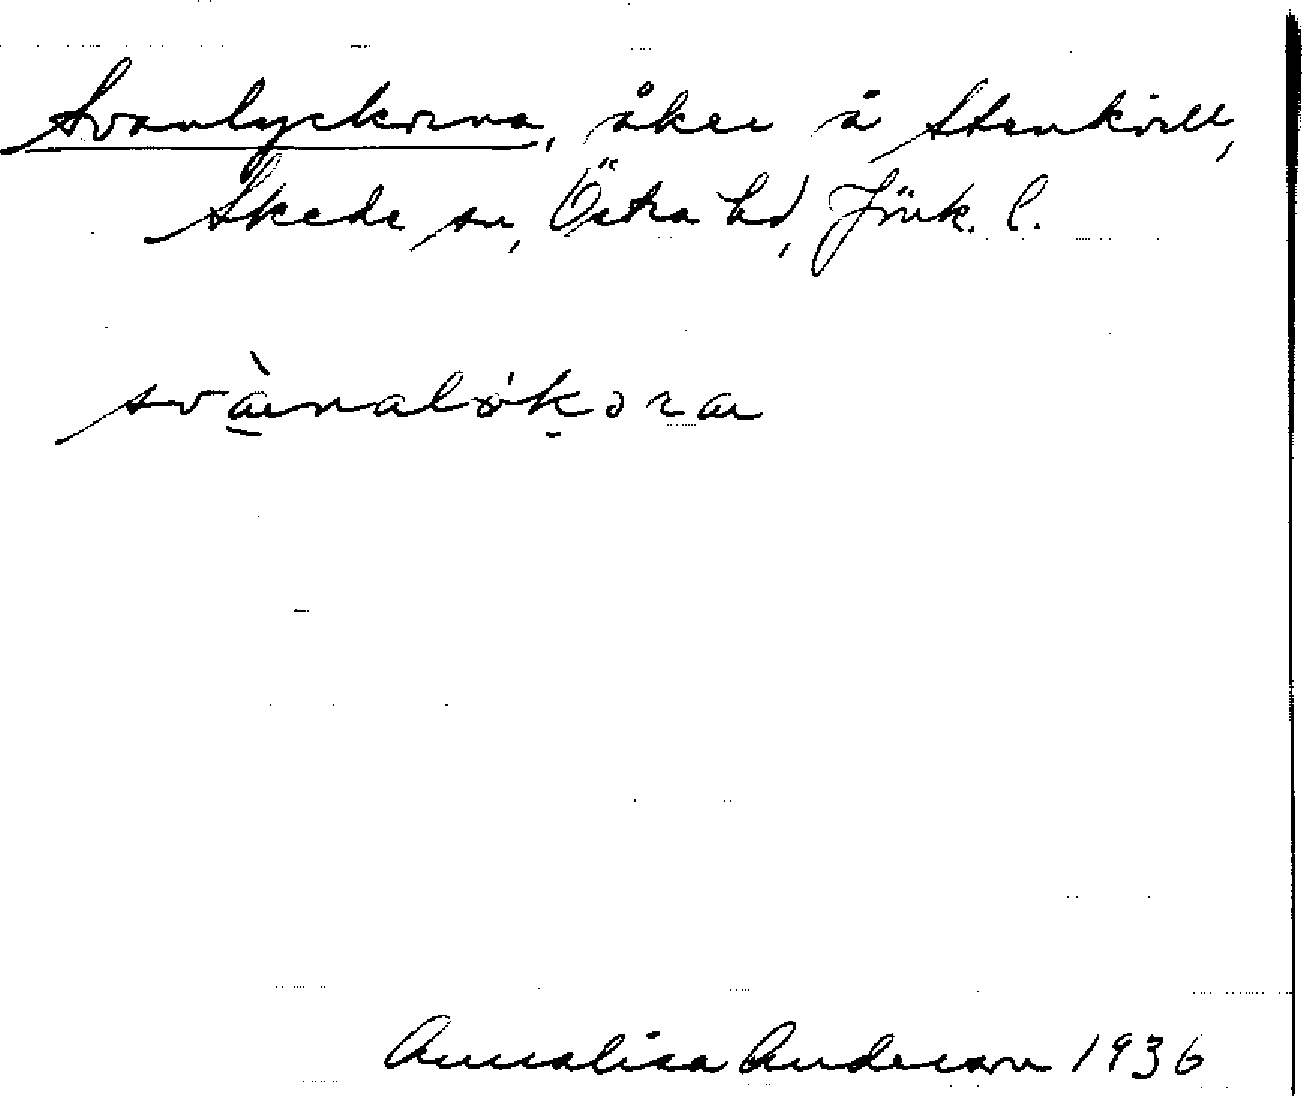 Svanlyckorna, åker å Stenkvill,
Skede sn, Östra hd, Jönk. l.
svànalökora
Annalisa Anderson 1936